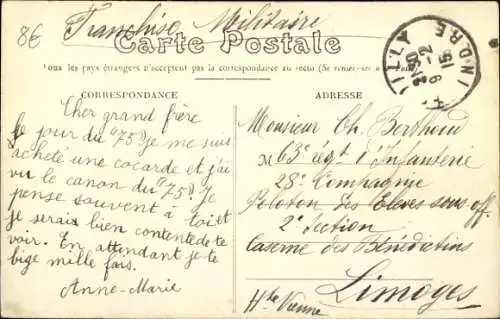 8€
Franchise Militaire
Carte Postale
Tous les pays étrangers n'acceptent pas la correspondance au recto (Se renseigner à la Poste)
CORRESPONDANCE
Cher grand frère
le jour du "75" je me suis
acheté une cocarde et j'ai
vu le canon du "75". Je
pense souvent à toi et
je serais bien contente de te
voir. En attendant je te
bige mille fois.
Anne-Marie
ADRESSE
Monsieur Ch. Berthoud
63e régt d'Infanterie
28e Compagnie
Peloton des Eleves sous off.
2e Section
Caserne des Bénédictins
Limoges
Hte Vienne
INDRE